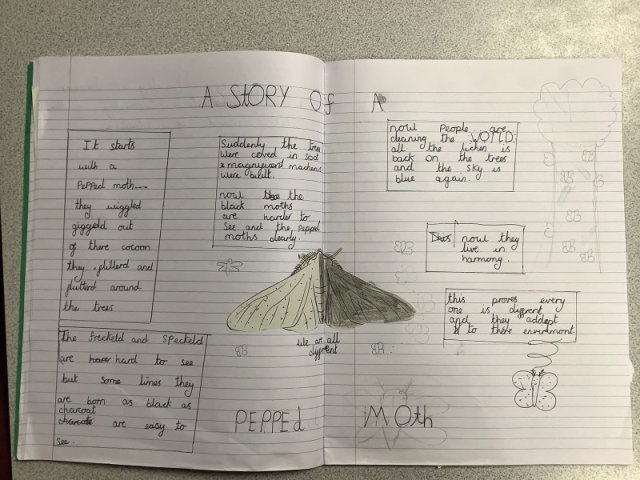 A StORY Of A
It starts
with a
Pepped moth....
they wiggled
giggeld out
of there cocoon
they flutterd and
flutterd around
the trees
The freckeld and speckeld
are hard to see
but some times they
are born as black as
charcoal
are easy to
see.
Suddenly the trees
were coverd in soot
& magnificent machines
were bulit.
now the the
black moths
are harder to
see and the pepped
moths clearly.
we are all
diffrent
now People are
cleaning the WORLD
all the lichen is
back on the trees
and the sky is
blue again.
now they
live in
harmony.
this proves every
one is diffrent
and they addapt
to there enviroment
PEPPEd MOth